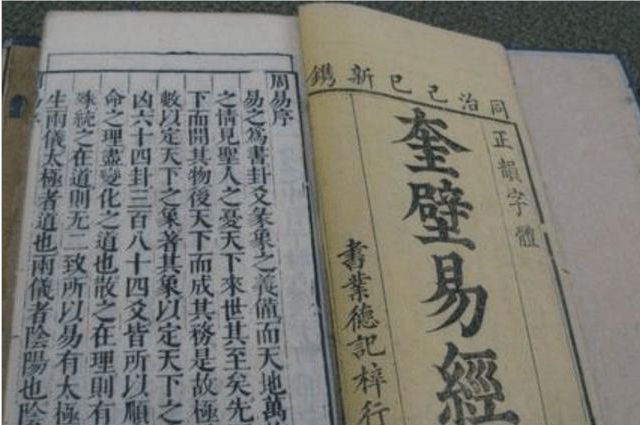 同治己巳新鐫
正韻字體
奎壁易經
書業德記梓行
周易序
易之爲書卦爻彖象之義備而天地萬
之情見聖人之憂天下來世其至矣先
下而開其物後天下而成其務是故極
數以定天下之象著其象以定天下之
凶六十四卦三百八十四爻皆所以順
命之理盡變化之道也散之在理則有
殊統之在道則无二致所以易有太極
生兩儀太極者道也兩儀者陰陽也陰